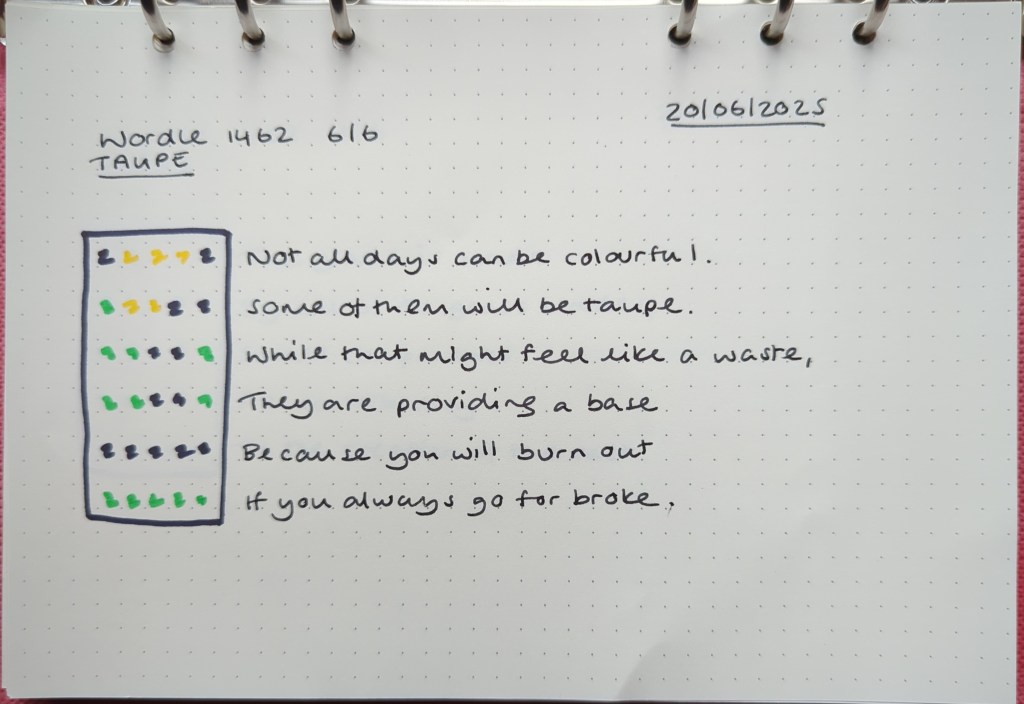 20/06/2025
Wordle 1462 6/6
TAUPE
Not all days can be colourful.
Some of them will be taupe.
While that might feel like a waste,
They are providing a base
Because you will burn out
If you always go for broke.